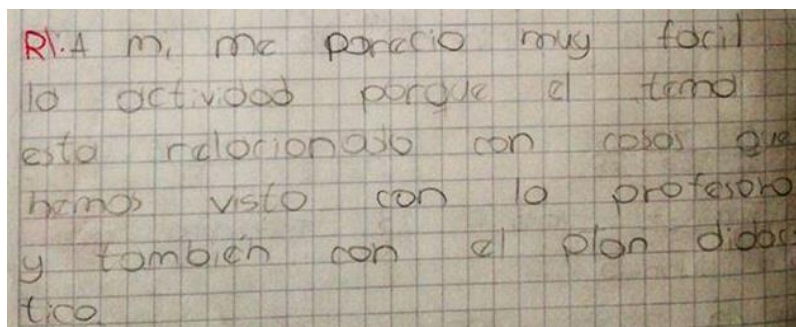 R\. A mi me parecio muy facil
la actividad porque el tema
esta relacionado con cosas que
hemos visto con la profesora
y tambien con el plan didac
tico